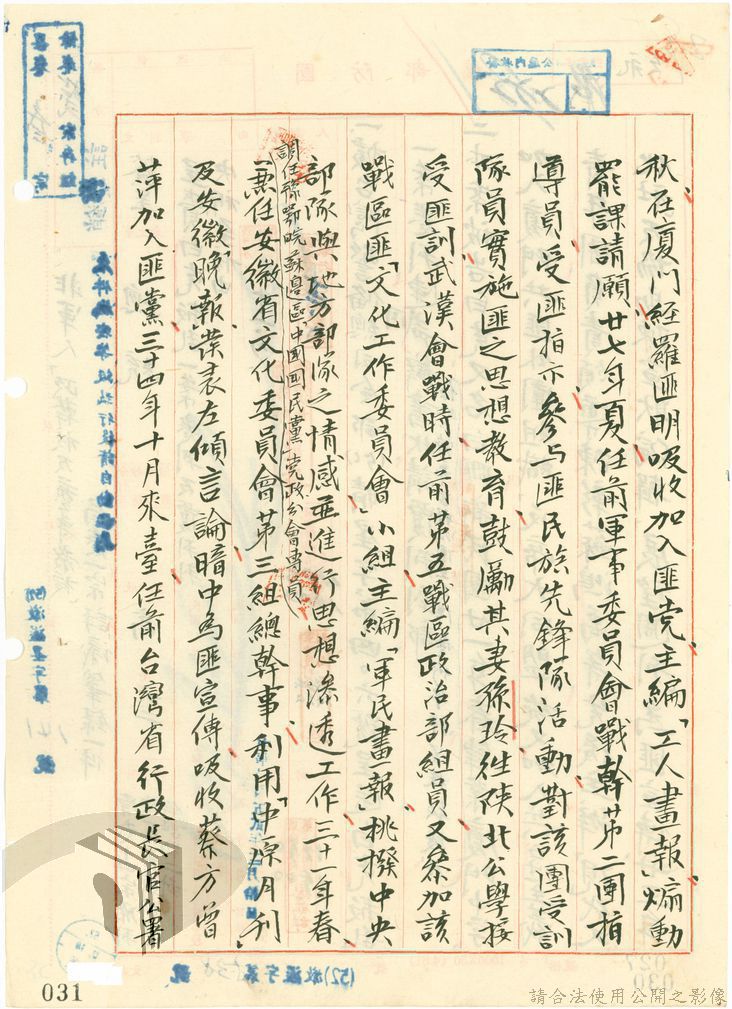 秋在廈门經羅匪明吸收加入匪党主編「工人畫報」煽動
罷課請願廿七年夏任前軍事委員會戰幹第二團指
導員受匪指亦參与匪民族先鋒隊活動對該團受訓
隊員實施匪之思想教育鼓勵其妻孫玲徃陝北公學接
受匪訓武漢會戰時任前第五戰區政治部組員又參加該
戰區匪「文化工作委員會」小組主編「軍民畫報」挑撥中央
部隊與地方部隊之情感並進行思想滲透工作三十一年春
調任豫鄂皖蘇邊區中國國民黨党政分會專員
兼任安徽省文化委員會第三組總幹事利用「中原月刊」
及安徽「晚報」發表左傾言論暗中為匪宣傳吸收蔡方曾
萍加入匪黨三十四年十月來臺任前台灣省行政長官公署
031
請合法使用公開之影像